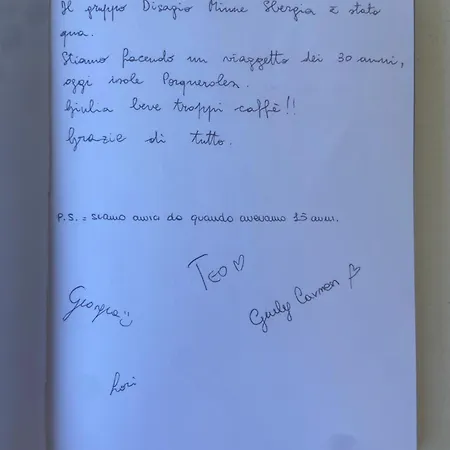 Il gruppo Disagio Minne Sbergia è stato
qua.
Stiamo facendo un viaggetto dei 30 anni,
oggi isole Porquerolles.
Giulia beve troppi caffè!!
Grazie di tutto.
P.S. = siamo amici da quando avevamo 15 anni.
TEO ♡
Giorgia
Carmen
Lori